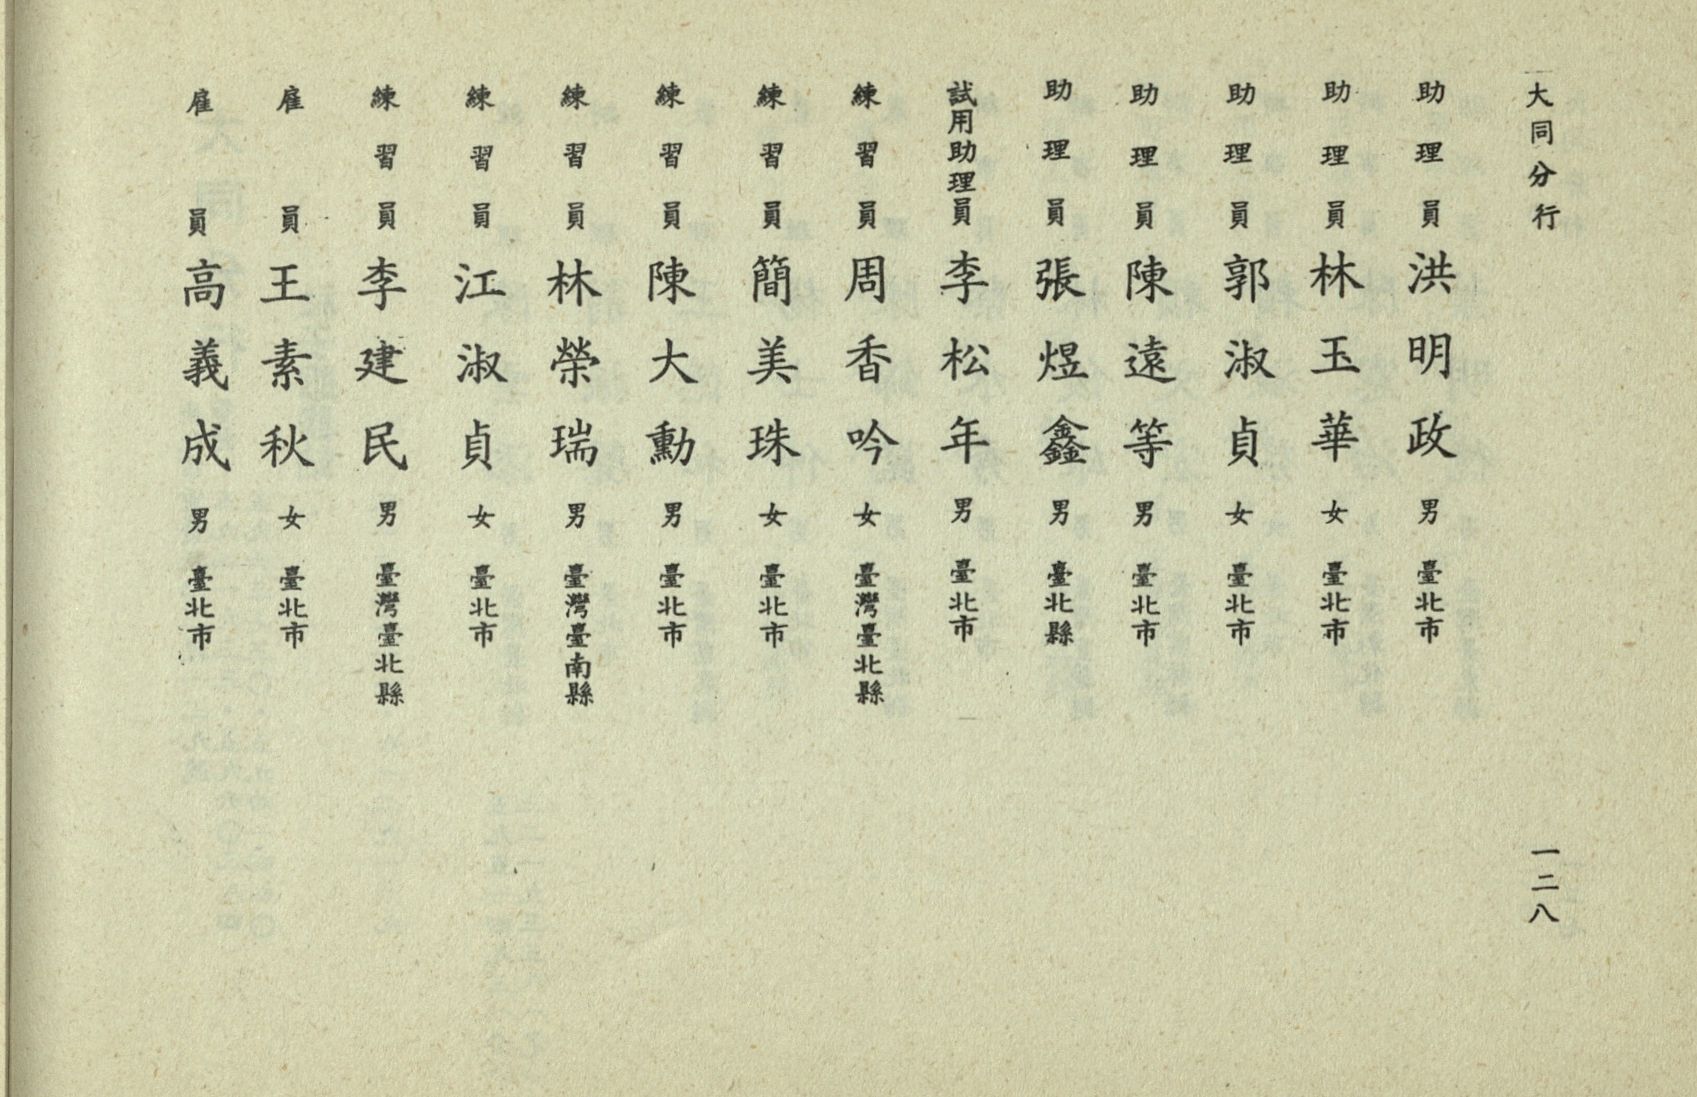 大同分行
一二八
助理員 洪明政 男 臺北市
助理員 林玉華 女 臺北市
助理員 郭淑貞 女 臺北市
助理員 陳遠等 男 臺北市
助理員 張煜鑫 男 臺北縣
試用助理員 李松年 男 臺北市
練習員 周香吟 女 臺灣臺北縣
練習員 簡美珠 女 臺北市
練習員 陳大勳 男 臺北市
練習員 林榮瑞 男 臺灣臺南縣
練習員 江淑貞 女 臺北市
練習員 李建民 男 臺灣臺北縣
雇員 王素秋 女 臺北市
雇員 高義成 男 臺北市